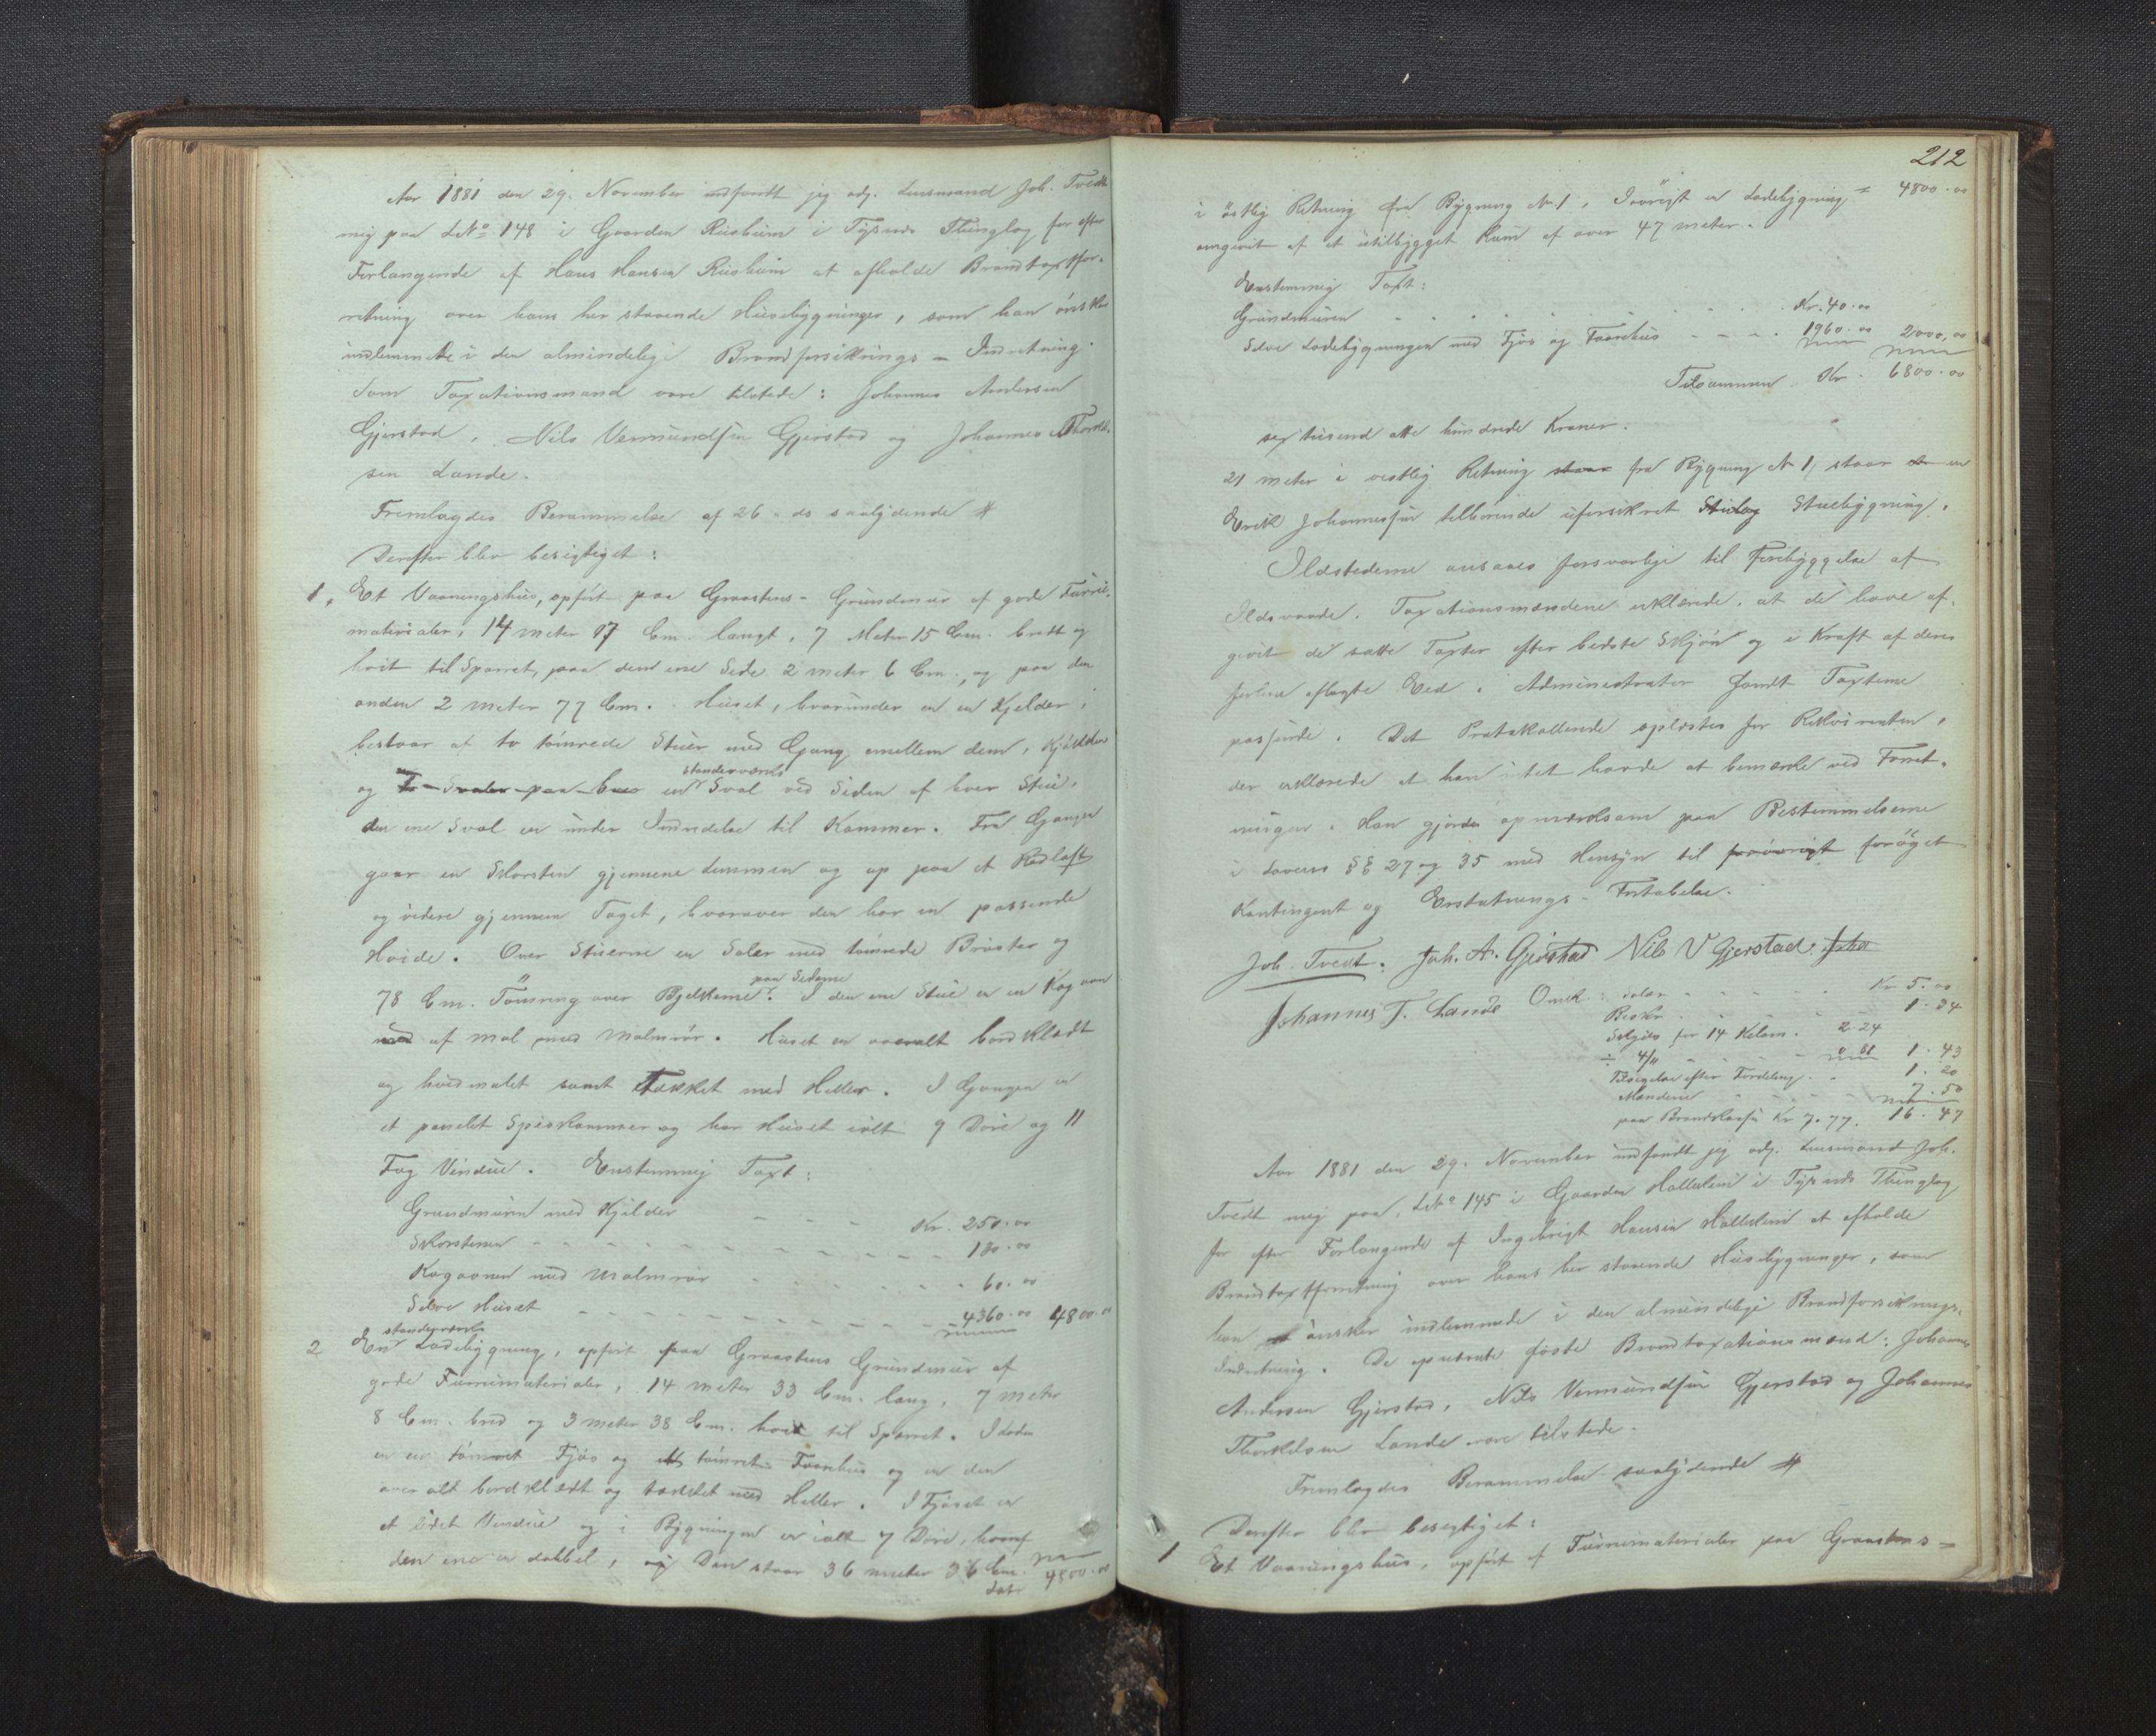 Aar 1881 den 29. November indfandt jeg adj. Lensmand Joh. Tvedt
mig paa L.No 148 i Gaarden Risheim i Tysnes Thinglag for efter
Forlangende af Hans Hansen Risheim at afholde Brandtaxtfor-
retning over hans her staaende Huusbygninger, som han ønsker
indlemmede i den almindelige Brandforsikrings-Indretning.
Som Taxationsmænd vare tilstede: Johannes Andersen
Gjerstad, Nils Vermundsen Gjerstad og Johannes Thorkild-
sen Lande.
Fremlagdes Berammelse af 26. ds saalydende #
Derefter blev besigtiget:
1. Et Vaaningshus, opført paa Graastens-Grundmur af gode Furru-
materialer, 14 meter 17 Cm. langt, 7 Meter 15 Cm. bredt og
høit til Sparret, paa den ene Side 2 meter 6 Cm., og paa den
anden 2 meter 77 Cm. Huset, hvorunder er en Kjelder,
bestaar af to tømrede Stuer med Gang emellem dem, Kjøkken
standerværks
og To Svaler paa en Sval ved Siden af hver Stue,
den ene Sval er under Indredelse til Kammer. Fra Gangen
gaar en Skorsten gjennem Lemmen og op paa et Rødloft
og videre gjennem Taget, hvorover den har en passende
Høide. Over Stuerne er Saler med tømrede Brøster og
paa Siderne
78 Cm. Tømring over Bjelkerne. I den ene Stue er en Kogovn
med af Mal med Malmrør. Huset er overalt bordklædt
og hvidmalet samt Tækket med Heller. I Gangen er
et panelet Spiskammer og har Huset ialt 9 Døre og 11
Fag Vindue. Enstemmig Taxt:
Grundmuren med Kjelder - - - Kr. 250.00
Skorstenen - - - 130.00
Kogovnen med Malmrør - - - 60.00
Selve Huset - - - 4360.00 4800.00
standerværks
2 En Ladebygning, opført paa Graastens Grundmur af
gode Furrumaterialer, 14 meter 33 Cm. lang, 7 meter
8 Cm. bred og 3 meter 38 Cm. høit til Sparret. I Laden
er en tømret Fjøs og et tømret Faarehus og er den
over alt bordklædt og tækket med Heller. I Fjøset er
et lidet Vindue og i Bygningen er ialt 7 Døre, hvoraf
den ene er dobbel, og Den staar 36 meter 36 Cm.
Lats 4800.00
212
i østlig Retning fra Bygning No 1. Iøvrigt er Ladebygning = 4800.00
omgivet af et utilbygget Rum af over 47 meter.
Enstemmig Taxt:
Grundmuren - - - Kr. 40.00
Selve Ladebygningen med Fjøs og Faarehus - - - 1960.00 2000,00
Tilsammen Kr. 6800.00
sextusend otte hundrede Kroner.
21 meter i vestlig Retning staar fra Bygning No 1, staar en
Erik Johannessen tilhørende uforsikret Stulag Stuebygning.
Ildstederne ansaaes forsvarlige til Forebyggelse af
Ildsvaade. Taxationsmændene erklærede, at de have af-
givet de satte Taxter efter bedste Skjøn og i Kraft af deres
forhen aflagte Eed. Administrator fandt Taxterne
passende. Det Protokollerede oplæstes for Rekvirenten,
der erklærede at han intet havde at bemærke ved Forret-
ningen. Han gjordes opmærksom paa Bestemmelserne
i Lovens §§ 27 og 35 med Hensyn til forøvrigt forøget
Kontingent og Erstatnings-Fortabelse.
Joh. Tvedt. Joh. A. Gjerstad Nils V Gjerstad.
Johannes T. Lande Omk.: Salær - - - Kr 5.00
Beskr. - - - 1.34
Skyds for 14 Kilom. 2.24
÷ 4/11 - - - 0 81 1.43
Tilsigelse efter Fordeling. - 1.20
Mændene - - - 7.50
paa Brandkassen Kr 7.77. 16.47
Aar 1881 den 29. November indfandt jeg adj. Lensmand Joh.
Tvedt mig paa L.No 145 i Gaarden Hallereim i Tysnes Thinglag
for efter Forlangende af Ingebrigt Hansen Hallereim at afholde
Brandtaxtforretning over hans her staaende Husebygninger, som
han ønsker indlemmede i den almindelige Brandforsikrings-
Indretning. De opnævnte faste Brandtaxationsmænd: Johannes
Andersen Gjerstad, Nils Vermundsen Gjerstad og Johannes
Thorkildsen Lande vare tilstede.
Fremlagdes Berammelse saalydende #
Derefter blev besigtiget:
1 Et Vaaningshus, opført af Furrumaterialer paa Graastens-